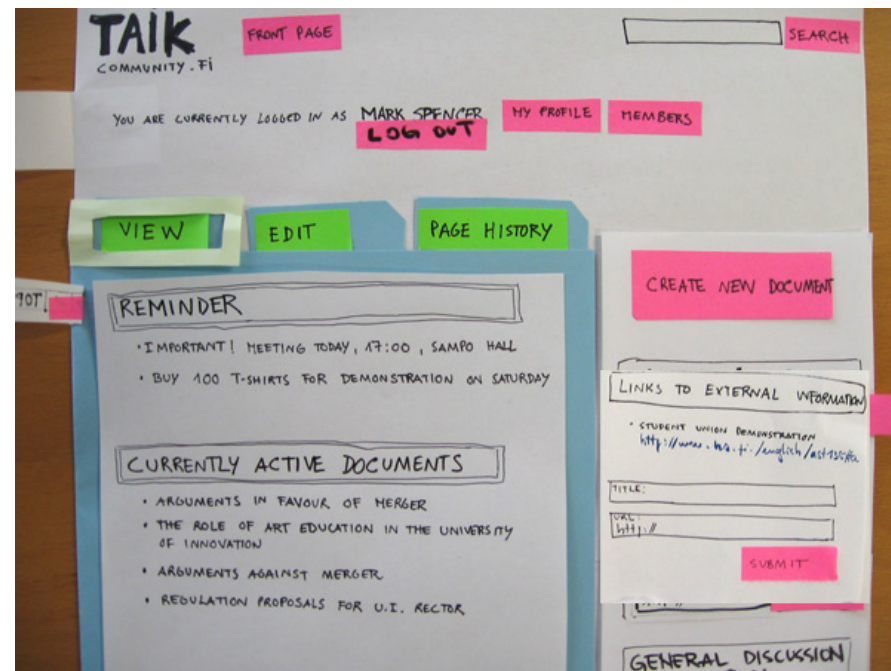 TAIK
COMMUNITY.Fi
FRONT PAGE
SEARCH
YOU ARE CURRENTLY LOGGED IN AS MARK SPENCER
LOG OUT
MY PROFILE
MEMBERS
VIEW
EDIT
PAGE HISTORY
REMINDER
• IMPORTANT! MEETING TODAY, 17:00, SAMPO HALL
• BUY 100 T-SHIRTS FOR DEMONSTRATION ON SATURDAY
CURRENTLY ACTIVE DOCUMENTS
• ARGUMENTS IN FAVOUR OF MERGER
• THE ROLE OF ART EDUCATION IN THE UNIVERSITY
OF INNOVATION
• ARGUMENTS AGAINST MERGER
• REGULATION PROPOSALS FOR U.I. RECTOR
CREATE NEW DOCUMENT
LINKS TO EXTERNAL INFORMATION
• STUDENT UNION DEMONSTRATION
TITLE:
URL:
http://
SUBMIT
GENERAL DISCUSSION